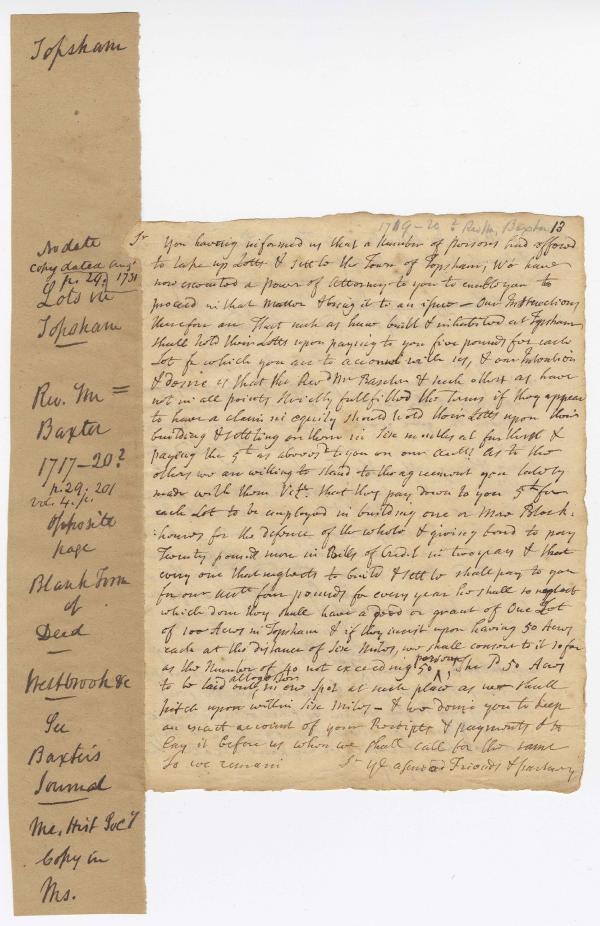 Topsham
No date
copy dated Aug.
p. 29. 1731
Lots in
Topsham
Rev. Mr =
Baxter
1717-20?
p. 29. 201
vol. 4. p.
opposite
page
Blank Form
of
Deed
Westbrook &c
See
Baxter's
Journal
Me. Hist Soc'y
Copy in
Ms.
1719-20? Rev Mr. Baxter 13
Sr You having informed us that a number of persons had offered
to take up Lotts & settle the Town of Topsham, We have
now executed a power of Attorney to you to enable you to
proceed in that Matter & bring it to an issue - Our Instructions
therefore are That such as have built & inhabited at Topsham
shall hold their Lotts upon paying to you five pounds for each
Lot for which you are to account with us, & our Intention
& desire is that the Revd Mr Baxter & such others as have
not in all points strictly fullfilled the terms if they appear
to have a claim in equity should hold their Lotts upon their
building & settling on them in Six months at furthest &
paying the 5£ as abovesd to you on our acctt. As to the
others we are willing to stand to the agreement you lately
made with them Vizt. that they pay down to you 5£ for
each Lot to be employed in building one or More Block-
:houses for the defence of the whole & giving bond to pay
Twenty pounds more in Bills of Credit in two years & that
every one that neglects to build & settle shall pay to you
for our acctt four pounds for every year he shall so neglect
which done they shall have a deed or grant of One Lot
of 100 Acres in Topsham & if they insist upon having 50 Acres
each at the distance of Six Miles, we shall consent to it so far
as the Number of 40 not exceeding 50 persons, The sd 50 Acres
to be laid altogether only in one Spot at such place as we shall
pitch upon within Six Miles - & we desire you to keep
an exact account of your Receipts & payments & to
lay it before us when we shall call for the same
So we remain Sr Yr assured Friends & partners